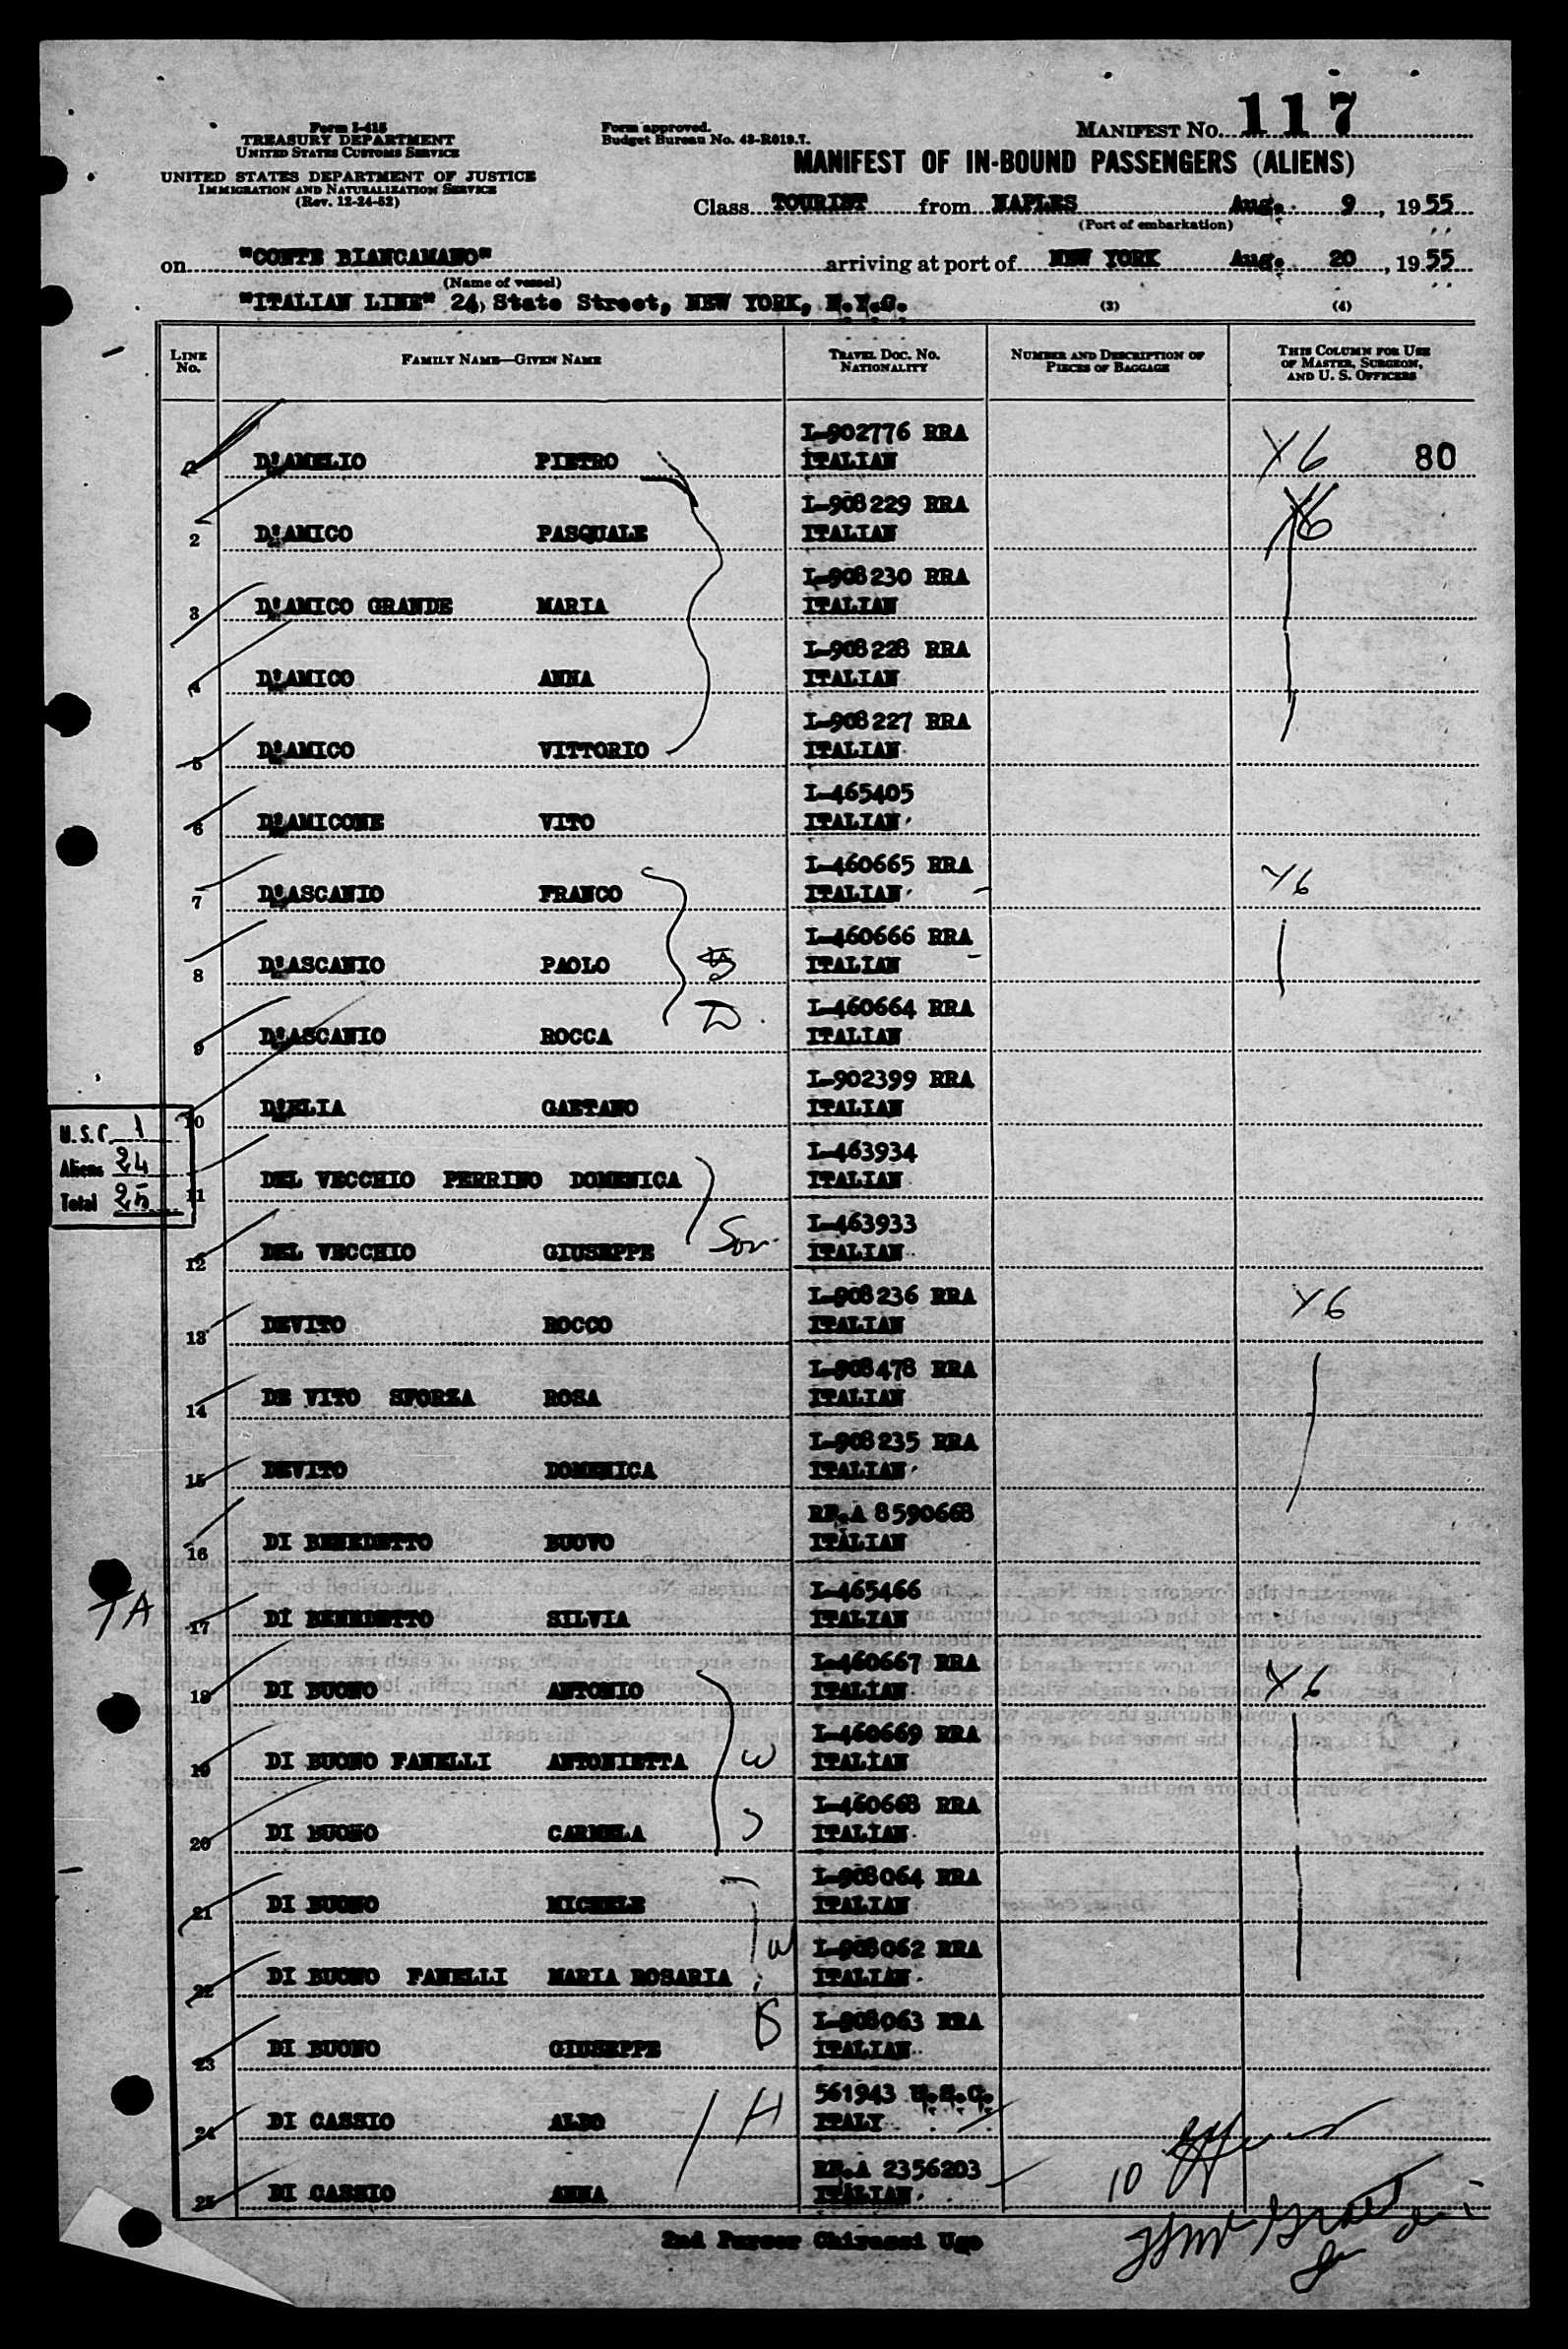 Form I-415
TREASURY DEPARTMENT
UNITED STATES CUSTOMS SERVICE
UNITED STATES DEPARTMENT OF JUSTICE
IMMIGRATION AND NATURALIZATION SERVICE
(Rev. 12-24-52)
Form approved.
Budget Bureau No. 43-R019.7.
MANIFEST NO. 117
MANIFEST OF IN-BOUND PASSENGERS (ALIENS)
Class TOURIST from NAPLES Aug. 9, 1955
(Port of embarkation)
on "CONTE BIANCAMANO" arriving at port of NEW YORK Aug. 20, 1955
(Name of vessel)
"ITALIAN LINE" 24, State Street, NEW YORK, N.Y.C. (3) (4)
LINE NO. FAMILY NAME—GIVEN NAME TRAVEL DOC. NO. NATIONALITY NUMBER AND DESCRIPTION OF PIECES OF BAGGAGE THIS COLUMN FOR USE OF MASTER, SURGEON, AND U. S. OFFICERS
I-902776 RRA
1 D'AMELIO PIETRO ITALIAN Y6 80
I-908229 RRA
2 D'AMICO PASQUALE ITALIAN Y6
I-908230 RRA
3 D'AMICO GRANDE MARIA ITALIAN
I-908228 RRA
4 D'AMICO ANNA ITALIAN
I-908227 RRA
5 D'AMICO VITTORIO ITALIAN
I-465405
6 D'AMICONE VITO ITALIAN
I-460665 RRA
7 D'ASCANIO FRANCO ITALIAN Y6
I-460666 RRA
8 D'ASCANIO PAOLO ITALIAN
I-460664 RRA
9 D'ASCANIO ROCCA D. ITALIAN
I-902399 RRA
10 D'ELIA GAETANO ITALIAN
U.S.C. 1
Aliens 24
Total 25
I-463934
11 DEL VECCHIO PERRINO DOMENICA ITALIAN
I-463933
12 DEL VECCHIO GIUSEPPE Son ITALIAN
I-908236 RRA
13 DEVITO ROCCO ITALIAN Y6
I-908478 RRA
14 DE VITO SFORZA ROSA ITALIAN
I-908235 RRA
15 DEVITO DOMENICA ITALIAN
RE.A 8590668
16 DI BENEDETTO BUOVO ITALIAN
7A
I-465466
17 DI BENEDETTO SILVIA ITALIAN
I-460667 RRA
18 DI BUONO ANTONIO ITALIAN Y6
I-460669 RRA
19 DI BUONO FANELLI ANTONIETTA W ITALIAN
I-460668 RRA
20 DI BUONO CARMELA ITALIAN
I-908064 RRA
21 DI BUONO MICHELE ITALIAN
I-908062 RRA
22 DI BUONO FANELLI MARIA ROSARIA W ITALIAN
I-908063 RRA
23 DI BUONO GIUSEPPE S ITALIAN
561943 U.S.C.
24 DI CASSIO ALDO H ITALY
RE.A 2356203
25 DI CASSIO ANNA ITALIAN 10
2nd Purser Chirassi Ugo